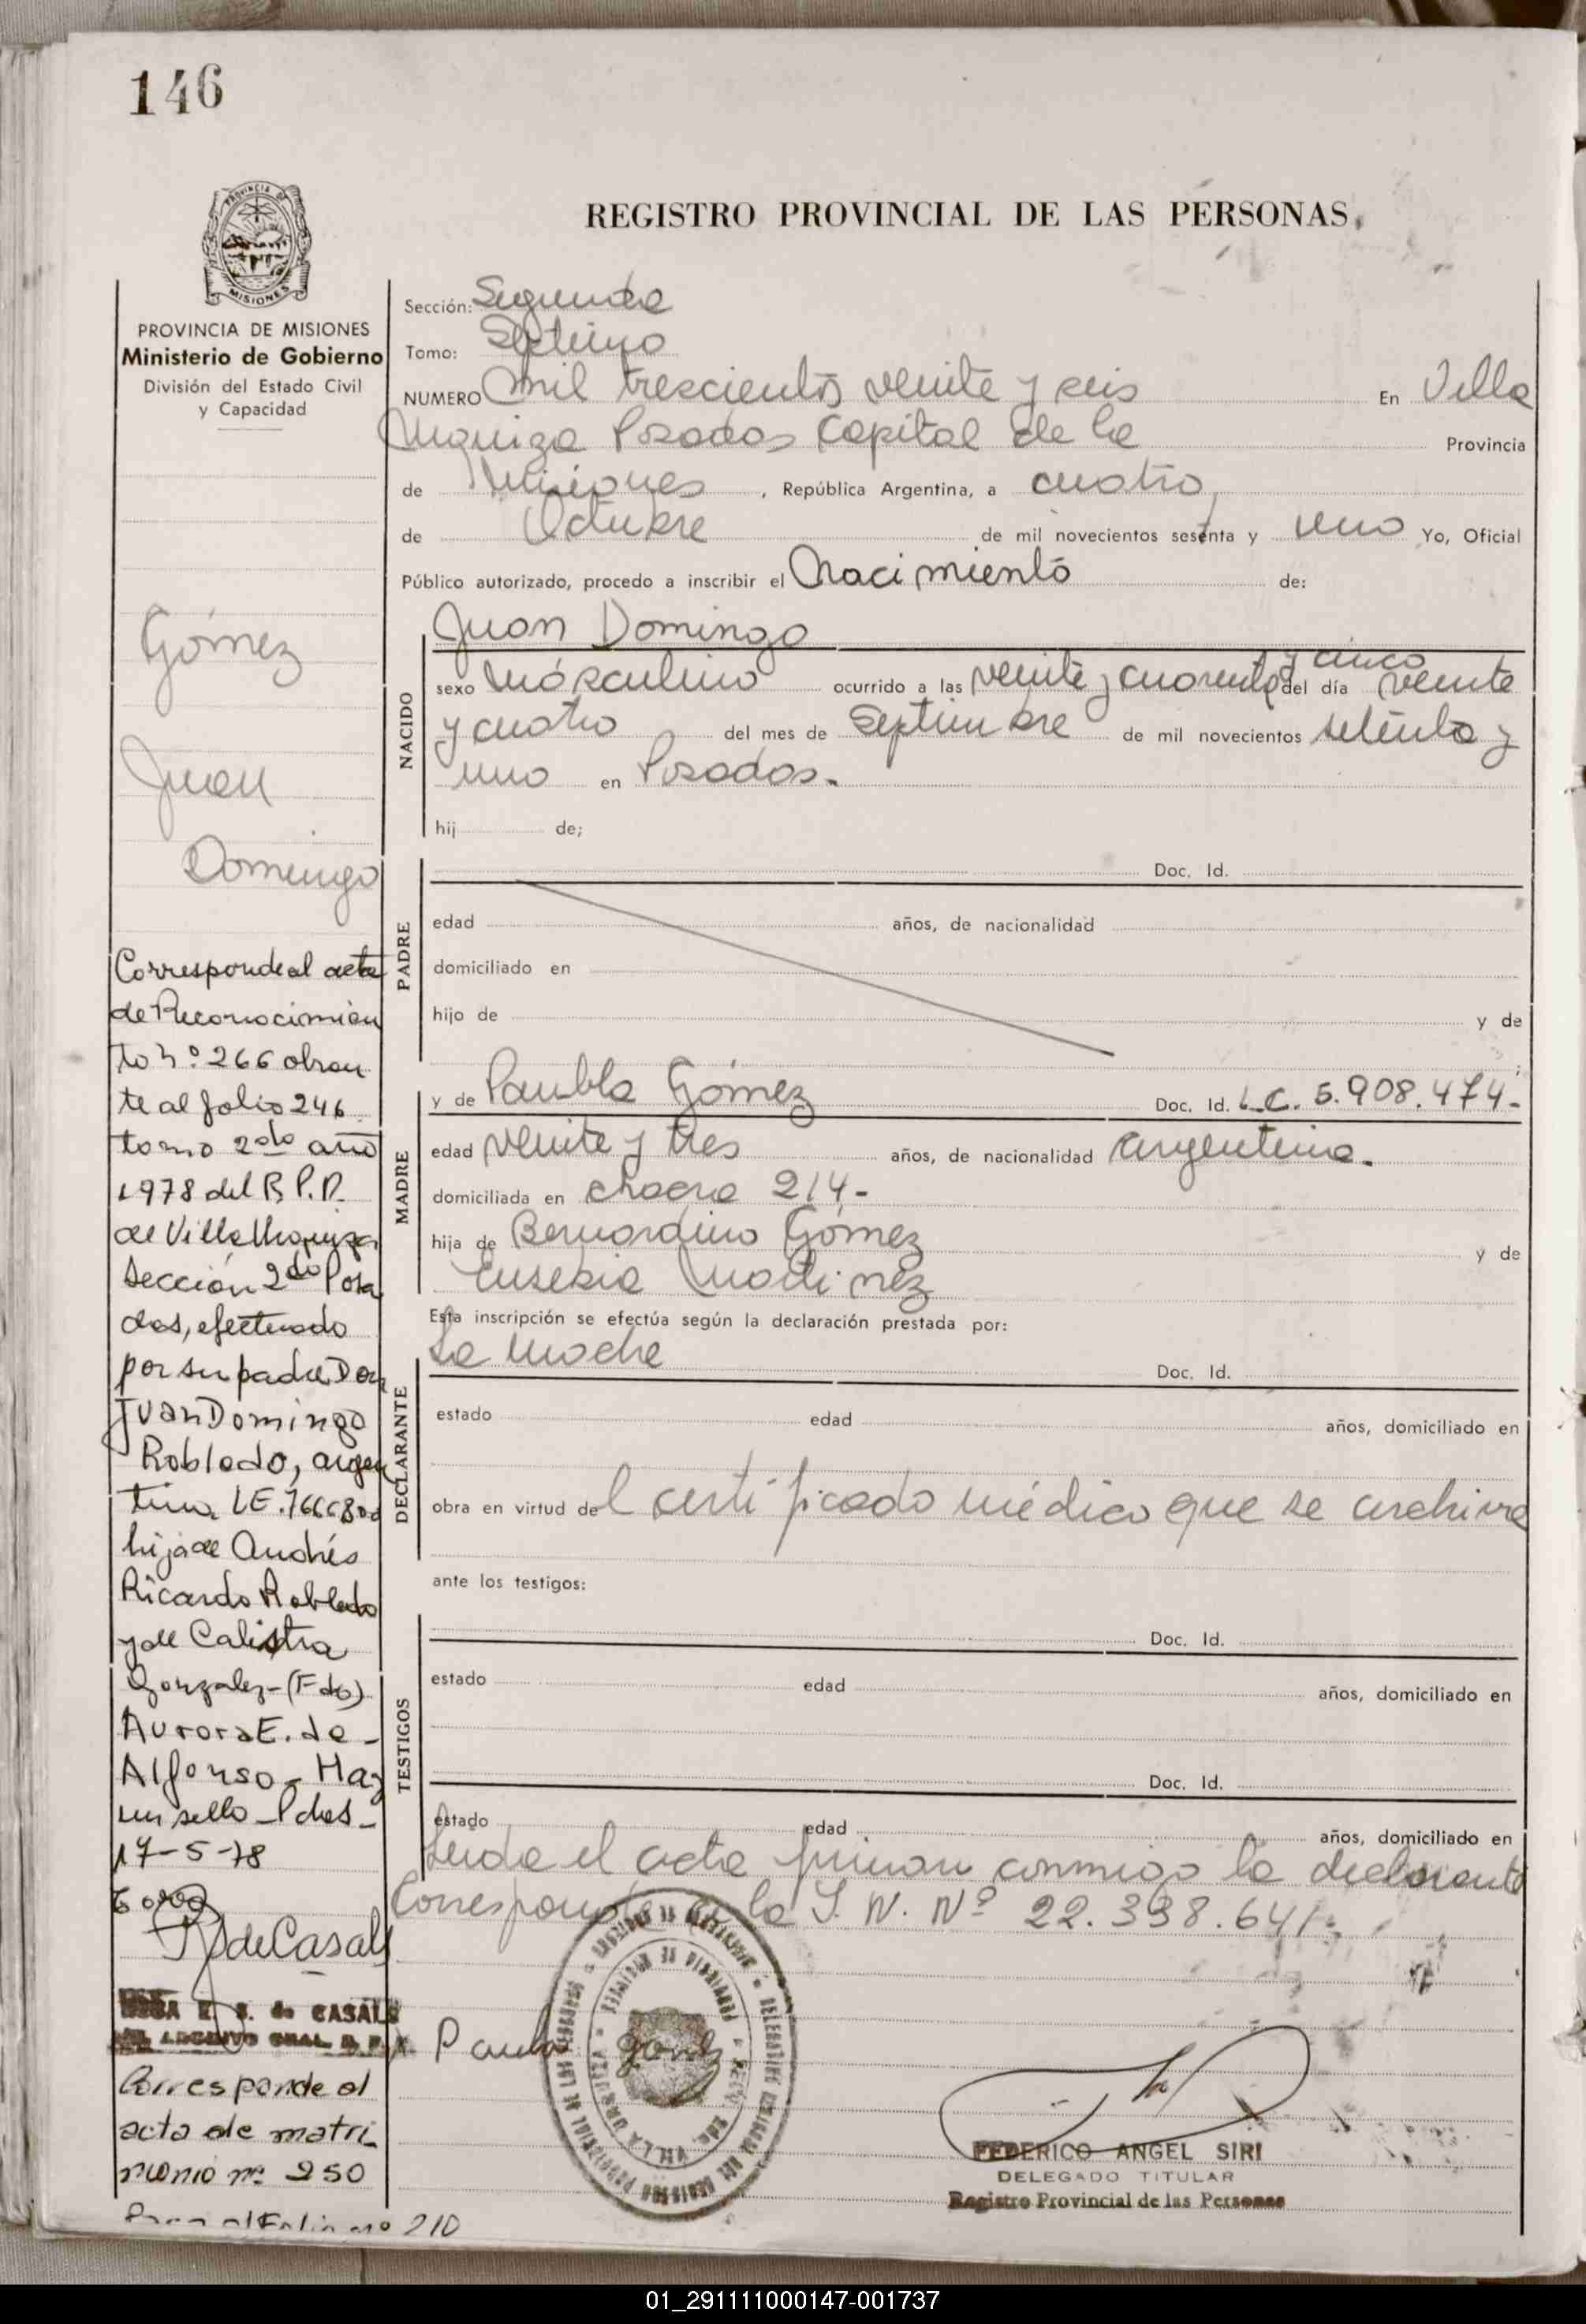 146
PROVINCIA DE
MISIONES
PROVINCIA DE MISIONES
Ministerio de Gobierno
División del Estado Civil
y Capacidad
REGISTRO PROVINCIAL DE LAS PERSONAS
Sección: Segunda
Tomo: Séptimo
NUMERO Mil trescientos veinte y seis En Villa
Urquiza Posadas Capital de la Provincia
de Misiones , República Argentina, a cuatro
de Octubre de mil novecientos sesenta y uno Yo, Oficial
Público autorizado, procedo a inscribir el Nacimiento de:
NACIDO
Juan Domingo
y cinco
sexo Másculino ocurrido a las veinte y cuarenta del día veinte
y cuatro del mes de Septiembre de mil novecientos setenta y
uno en Posadas.
hij de;
PADRE
Doc. Id.
edad años, de nacionalidad
domiciliado en
hijo de y de
;
MADRE
y de Paubla Gómez Doc. Id. L.C. 5.908.474-
edad veinte y tres años, de nacionalidad argentina.
domiciliada en chacra 214-
hija de Bernardino Gómez y de
Eusebia Martinez
Esta inscripción se efectúa según la declaración prestada por:
DECLARANTE
La madre Doc. Id.
estado edad años, domiciliado en
obra en virtud del certificado médico que se archiva
ante los testigos:
TESTIGOS
Doc. Id.
estado edad años, domiciliado en
Doc. Id.
estado edad años, domiciliado en
Leida el acta firman conmigo la declarante
Corresponde a la I. N. Nº 22.338.641.
Paula
VILLA URQUIZA
FEDERICO ANGEL SIRI
DELEGADO TITULAR
Registro Provincial de las Personas
Gómez
Juan
Domingo
Corresponde al acta
de Reconocimien
to nº 266 obran
te al folio 246
tomo 2do año
1978 del R.P.P.
de Villa Urquiza
Sección 2da Posa
das, efectuado
por su padre Don
Juan Domingo
Robledo, argen
tino, L.E.
hijo de Andrés
Ricardo Robledo
y de Calistra
Gonzalez-(Fdo)
Aurora E. de
Alfonso - Hay
un sello - Pdas -
17-5-78
de Casals
E. S. de CASALS
ARCHIVO GRAL. R. P. P.
Corresponde al
acta de matri
monio nº 250
al Folio nº 210
01_291111000147-001737